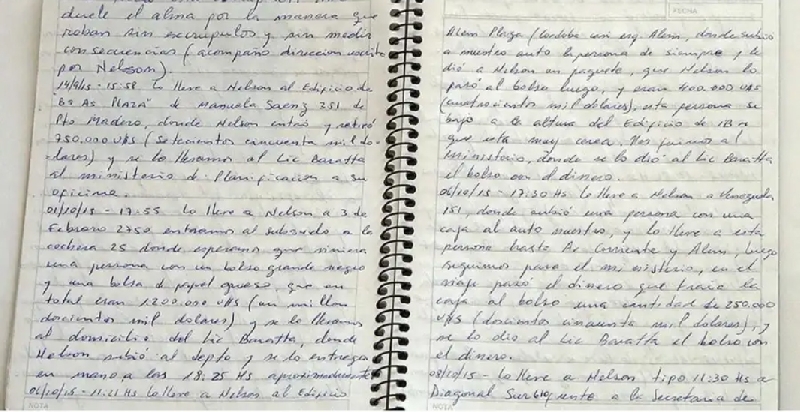 duele el alma por la manera que
roban sin escrupulos y sin medir
consecuencias (acompaño direccion escrita
por Nelson).
14/9/15 - 15:58 Lo lleve a Nelson al Edificio de
"Bs As Plaza" de Manuela Saenz 351 de
Pto Madero, donde Nelson entró y retiró
750.000 U$S (setecientos cincuenta mil do-
lares) y se lo llevamos al Lic Baratta
al ministerio de Planificacion a su
oficina.
01/10/15 - 17:55 Lo lleve a Nelson a 3 de
Febrero 2750 entramos al subsuelo a la
cochera 25 donde esperamos que viniera
una persona con un bolso grande negro
y una bolsa de papel grueso que en
total eran 1.200.000 U$S (un millon
doscientos mil dolares) y se lo llevamos
al domicilio del Lic Baratta, donde
Nelson subió al depto y se lo entrego
en mano a las 18:25 Hs aproximadamente
Lo lleve a Nelson al Edificio
NOTA
FECHA
Alem Plaza (Cordoba casi esq. Alem, donde subió
a nuestro auto la persona de siempre y le
dió a Nelson un paquete, que Nelson lo
pasó al bolso luego, y eran 400.000 U$S
(cuatrocientos mil dolares), esta persona se
bajo a la altura del Edificio de IBM
que está muy cerca. Nos fuimos al
Ministerio, donde se lo dió al Lic Baratta
el bolso con el dinero.
06/10/15 - 17:30 Hs Lo lleve a Nelson a Venezuela
151, donde subió una persona con una
caja al auto nuestro, y lo lleve a esta
persona hasta Av Corriente y Alem, luego
seguimos para el ministerio, en el
viaje pasó el dinero que traia la
caja al bolso una cantidad de 250.000
U$S (doscientos cincuenta mil dolares), y
se lo dio al Lic Baratta el bolso con
el dinero.
08/10/15 - Lo lleve a Nelson tipo 11:30 Hs a
Diagonal Sur frente a la Secretaria de
NOTA